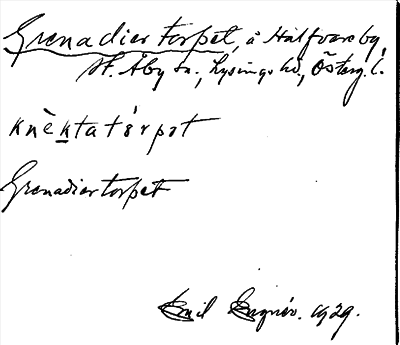 Grenadiertorpet, å Halfvareby,
St. Åby sn., Lysings hd, Österg. l.
knèktatårpət
Grenadiertorpet
Emil 1929.